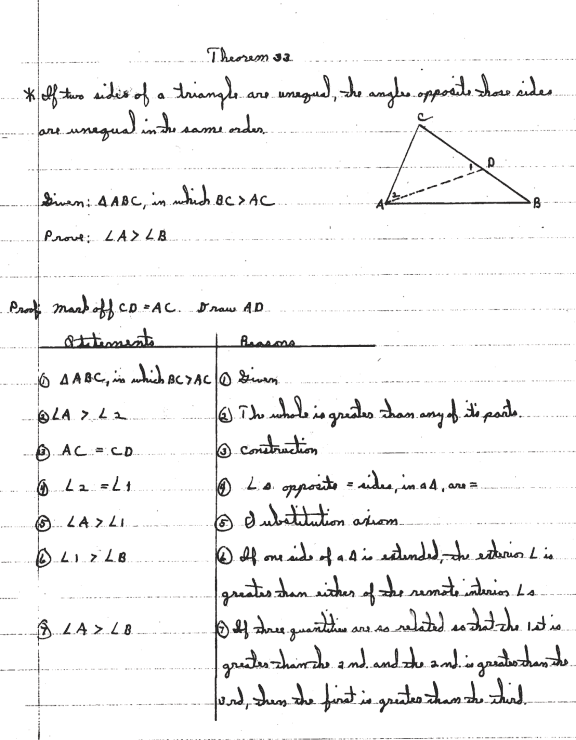 Theorem 32
* If two sides of a triangle are unequal, the angles opposite those sides
are unequal in the same order.
C
1 D
2
A B
Given: ΔABC, in which BC > AC
Prove: ∠A > ∠B
Proof: Mark off CD = AC. Draw AD
Statements Reasons
① ΔABC, in which BC > AC ① Given
② ∠A > ∠2 ② The whole is greater than any of its parts.
③ AC = CD ③ construction
④ ∠2 = ∠1 ④ ∠s opposite = sides, in a Δ, are =
⑤ ∠A > ∠1 ⑤ Substitution axiom
⑥ ∠1 > ∠B ⑥ If one side of a Δ is extended, the exterior ∠ is
greater than either of the remote interior ∠s
⑦ ∠A > ∠B ⑦ If three quantities are so related so that the 1st is
greater than the 2nd. and the 2nd. is greater than the
3rd, then the first is greater than the third.